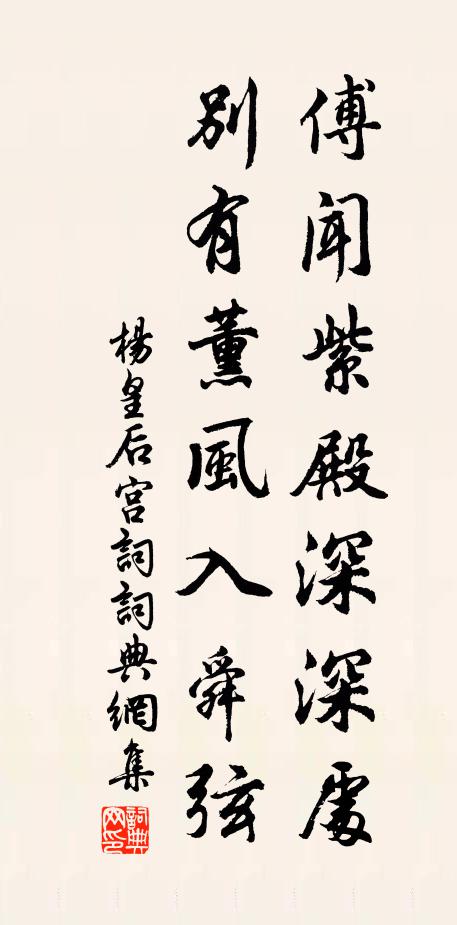 傅聞紫殿深深處
別有薰風入舜弦
楊皇后宮詞詞典網集
詞典网印